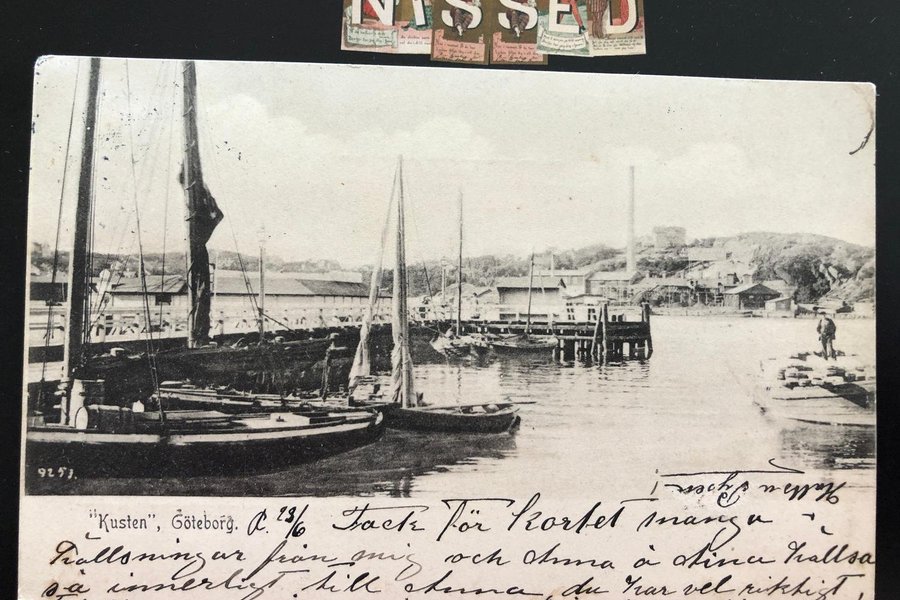 NISSED
9251.
"Kusten", Göteborg. d. 23/6 Tack för kortet manga
hällsningar från mig och Anna å dina hällsa
så innerligt till Anna, du har vel riktigt,